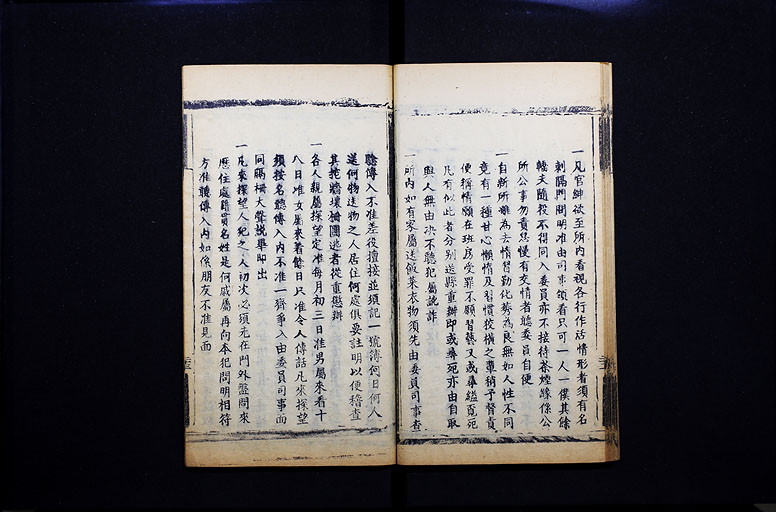 一凡官紳欲至所內看視各行作活情形者須有名
刺隔門問明准由司事領看只可一人一僕其餘
轎夫隨投不得同入委員亦不接待茶煙緣係公
所公事勿責怠慢有交情者聽委員自便
一自新所雖為去惰習勤化莠為良無如人性不同
竟有一種甘心懶惰及習慣狡橫之輩稍予督責
便稱情願在班房受罪不願習藝又或尋縊覓死
凡有似此者分別送縣重辦即或尋死亦由自取
與人無由決不聽犯屬訛詐
一所內如有家屬送飯菜衣物須先由委員司事查
驗傳入不准差役擅接並須記一號簿何日何人
送何物送物之人居住何處俱要註明以便稽查
其挖牆壞柵圖逃者從重懲辦
一各人親屬探望定准每月初三日准男屬來看十
八日准女屬來看餘日只准令人傳話凡來探望
須按名聽傳入內不准一齊爭入由委員司事面
同隔柵大聲說畢即出
一凡來探望人犯之人初次必須先在門外盤問來
歷住處籍貫名姓是何戚屬再向本犯問明相符
方准聽傳入內如係朋友不准見面